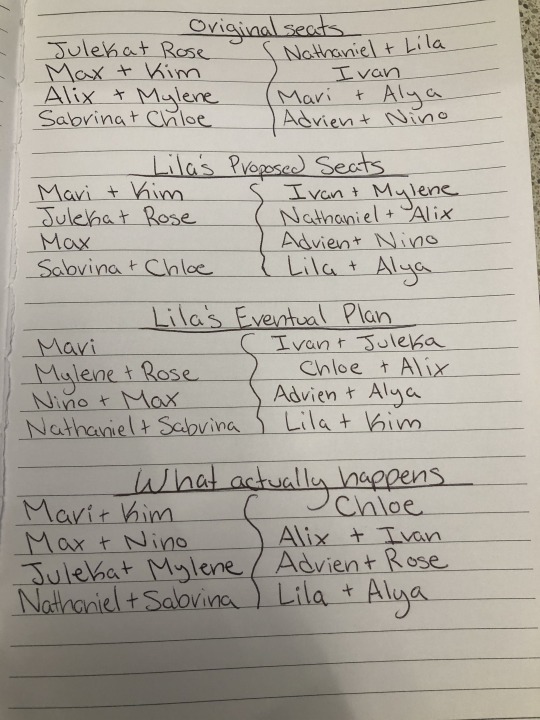 Original seats
Juleka + Rose
Max + Kim
Alix + Mylene
Sabrina + Chloe
Nathaniel + Lila
Ivan
Mari + Alya
Adrien + Nino
Lila's Proposed Seats
Mari + Kim
Juleka + Rose
Max
Sabrina + Chloe
Ivan + Mylene
Nathaniel + Alix
Adrien + Nino
Lila + Alya
Lila's Eventual Plan
Mari
Mylene + Rose
Nino + Max
Nathaniel + Sabrina
Ivan + Juleka
Chloe + Alix
Adrien + Alya
Lila + Kim
What actually happens
Mari + Kim
Max + Nino
Juleka + Mylene
Nathaniel + Sabrina
Chloe
Alix + Ivan
Adrien + Rose
Lila + Alya